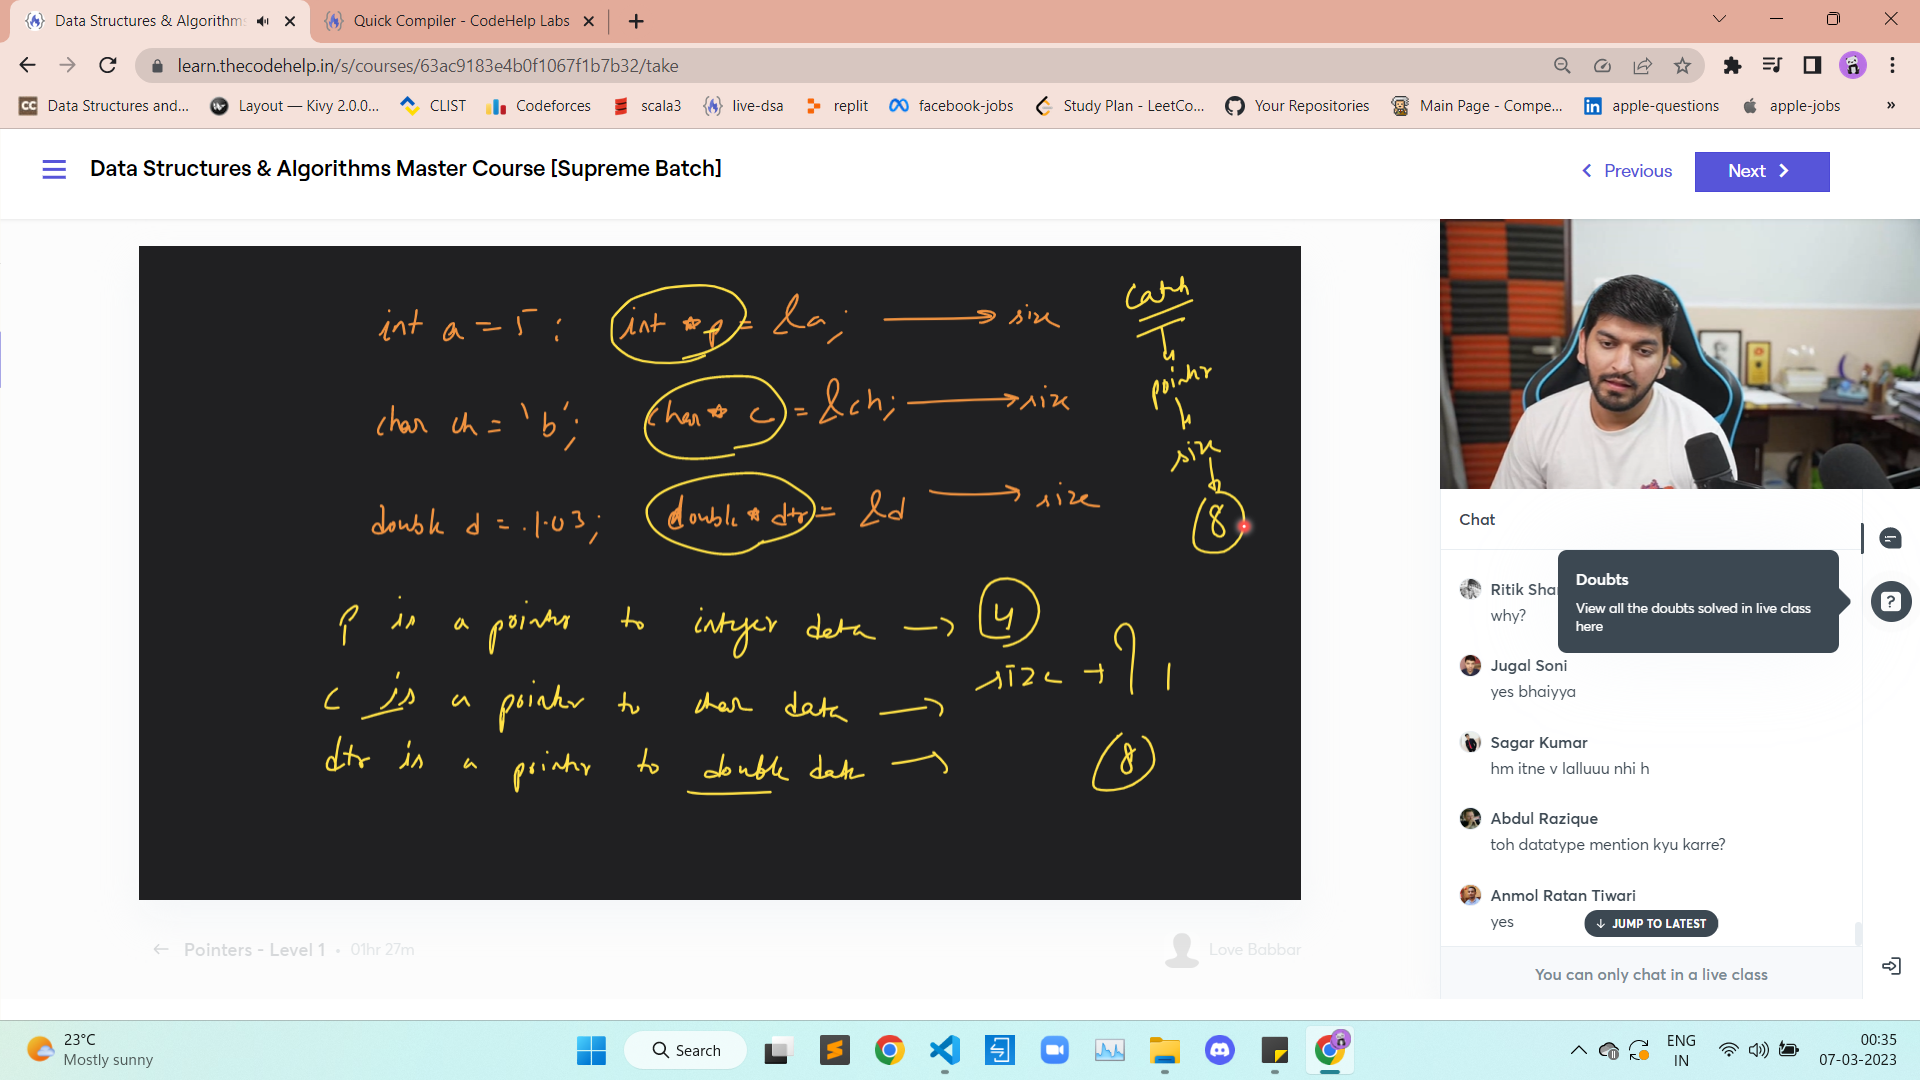 Data Structures & Algorithms
Quick Compiler - CodeHelp Labs
learn.thecodehelp.in/s/courses/63ac9183e4b0f1067f1b7b32/take
CC Data Structures and... Layout — Kivy 2.0.0... CLIST Codeforces scala3 live-dsa replit facebook-jobs Study Plan - LeetCo... Your Repositories Main Page - Compe... in apple-questions apple-jobs »
Data Structures & Algorithms Master Course [Supreme Batch]
Previous
Next
int a = 5 ; int * p = &a; size
char ch = 'b'; char * c = &ch; size
double d = .1.03; double * dtr = &d size
Catch
pointer
size
8
p is a pointer to integer data 4
size ? 1
c is a pointer to char data
dtr is a pointer to double data 8
Pointers - Level 1 • 01hr 27m
Love Babbar
Chat
Doubts
View all the doubts solved in live class
here
Ritik Sha
why?
Jugal Soni
yes bhaiyya
Sagar Kumar
hm itne v lalluuu nhi h
Abdul Razique
toh datatype mention kyu karre?
Anmol Ratan Tiwari
yes
JUMP TO LATEST
You can only chat in a live class
23°C
Mostly sunny
Search
ENG
IN
00:35
07-03-2023